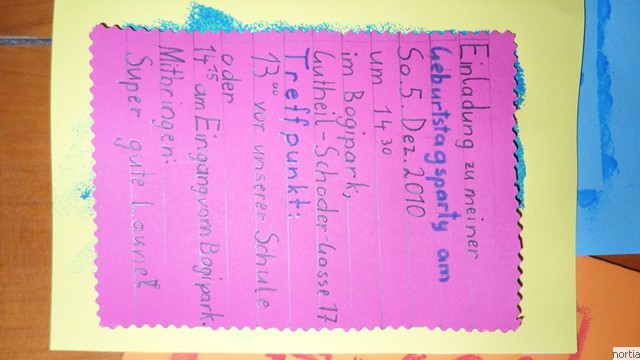 Einladung zu meiner
Geburtstagsparty am
So. 5. Dez. 2010
um 14 30
im Bogipark,
Gutheil-Schoder-Gasse 17
Treffpunkt:
13 00 vor unserer Schule
oder
14 15 am Eingang vom Bogipark.
Mitbringen:
Super gute Laune!
nortia